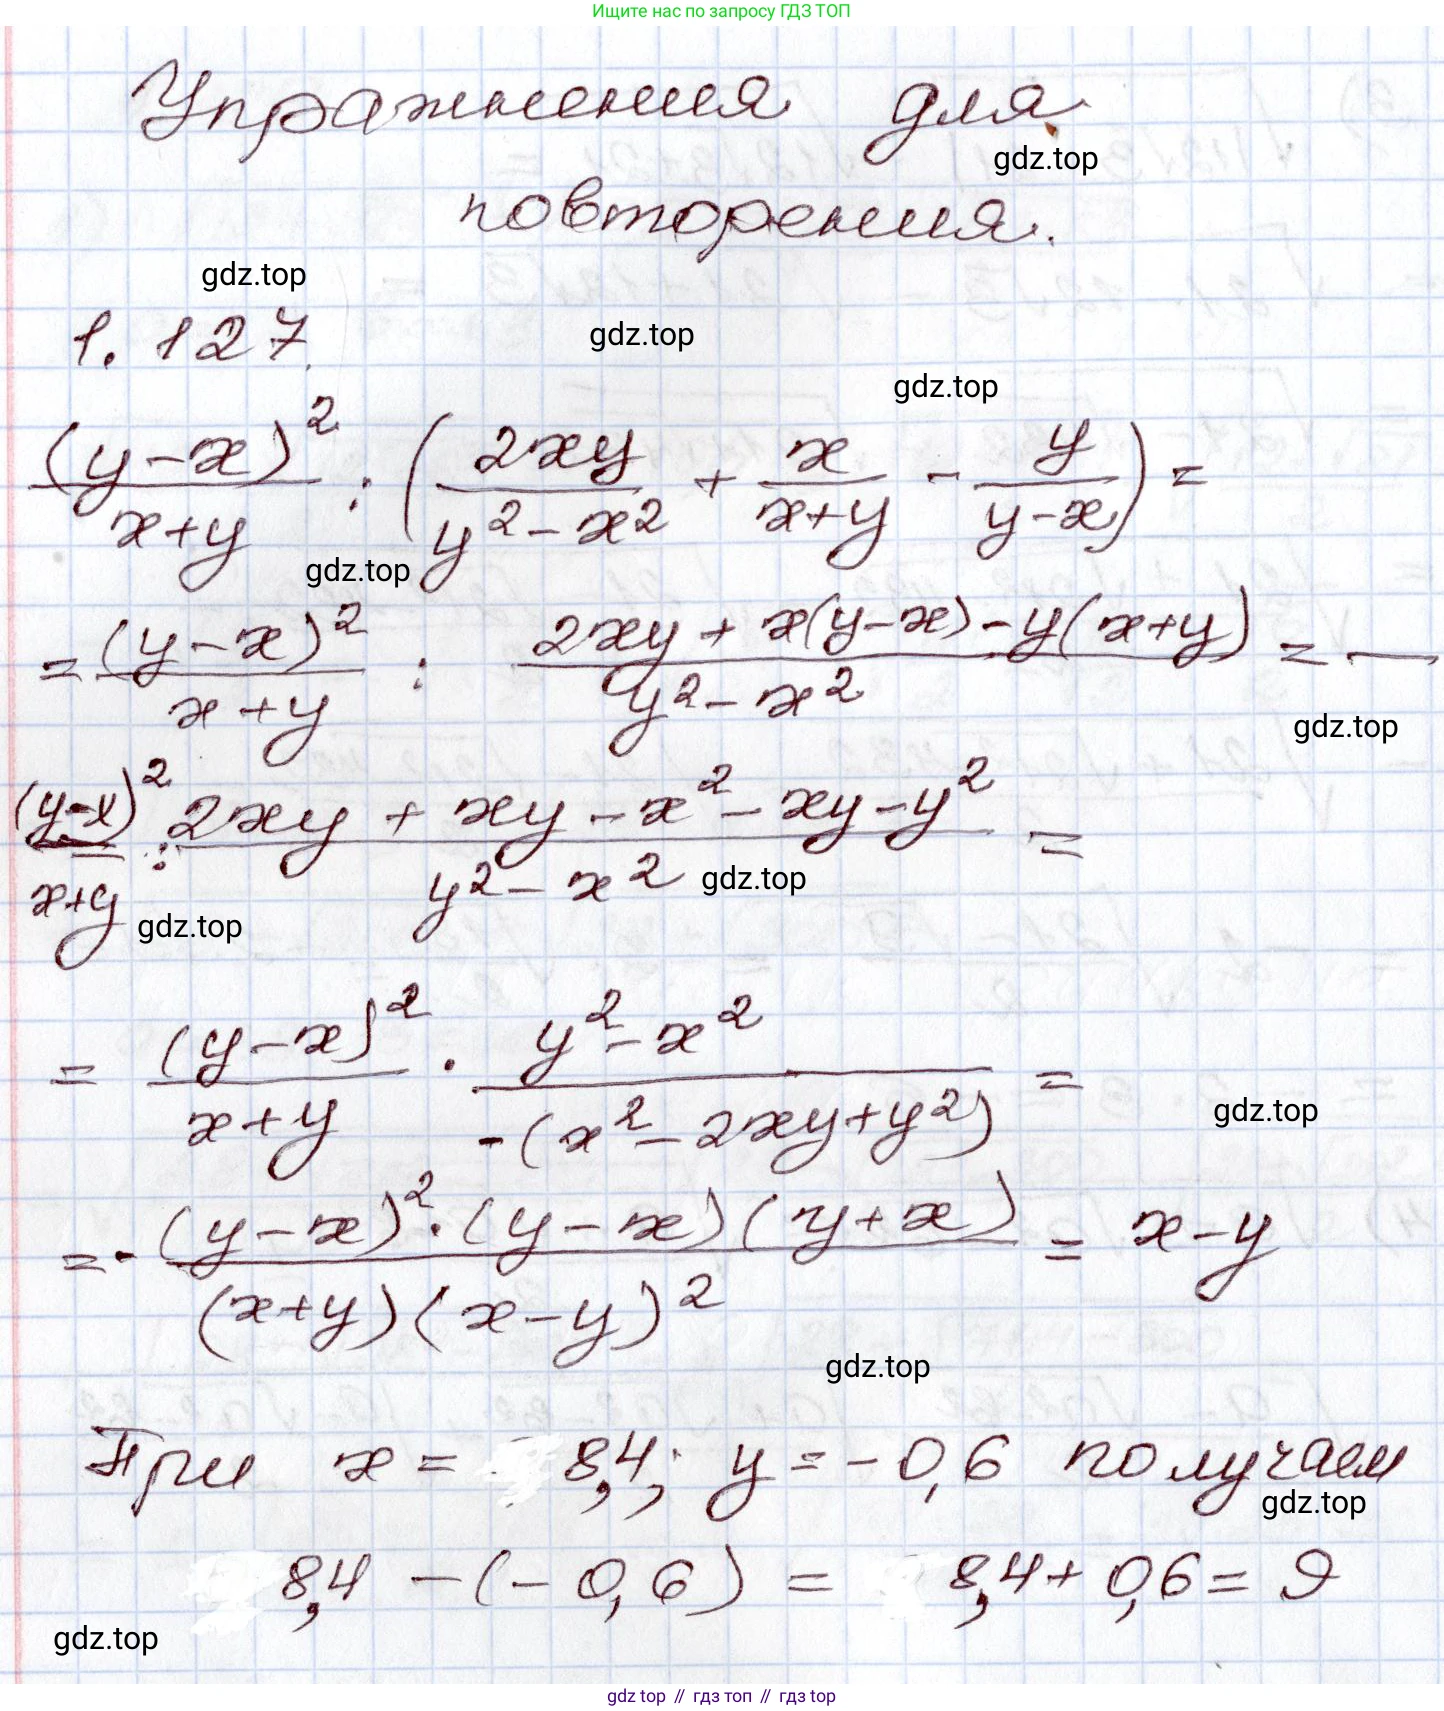 Ищите нас по запросу ГДЗ ТОП
Упражнения для
gdz.top
повторения.
gdz.top
1.127.
gdz.top
gdz.top
(y-x)²/(x+y) : (2xy/(y²-x²) + x/(x+y) - y/(y-x)) =
gdz.top
= (y-x)²/(x+y) : (2xy + x(y-x) - y(x+y))/(y²-x²) =
gdz.top
(y-x)²/(x+y) : (2xy + xy - x² - xy - y²)/(y²-x²) =
gdz.top
gdz.top
= (y-x)²/(x+y) · (y²-x²)/(-(x²-2xy+y²)) =
gdz.top
= - (y-x)²·(y-x)(y+x)/((x+y)(x-y)²) = x-y
gdz.top
При x = 8,4; y = -0,6 получаем
gdz.top
8,4 - (-0,6) = 8,4 + 0,6 = 9
gdz.top
gdz top // гдз топ // гдз top